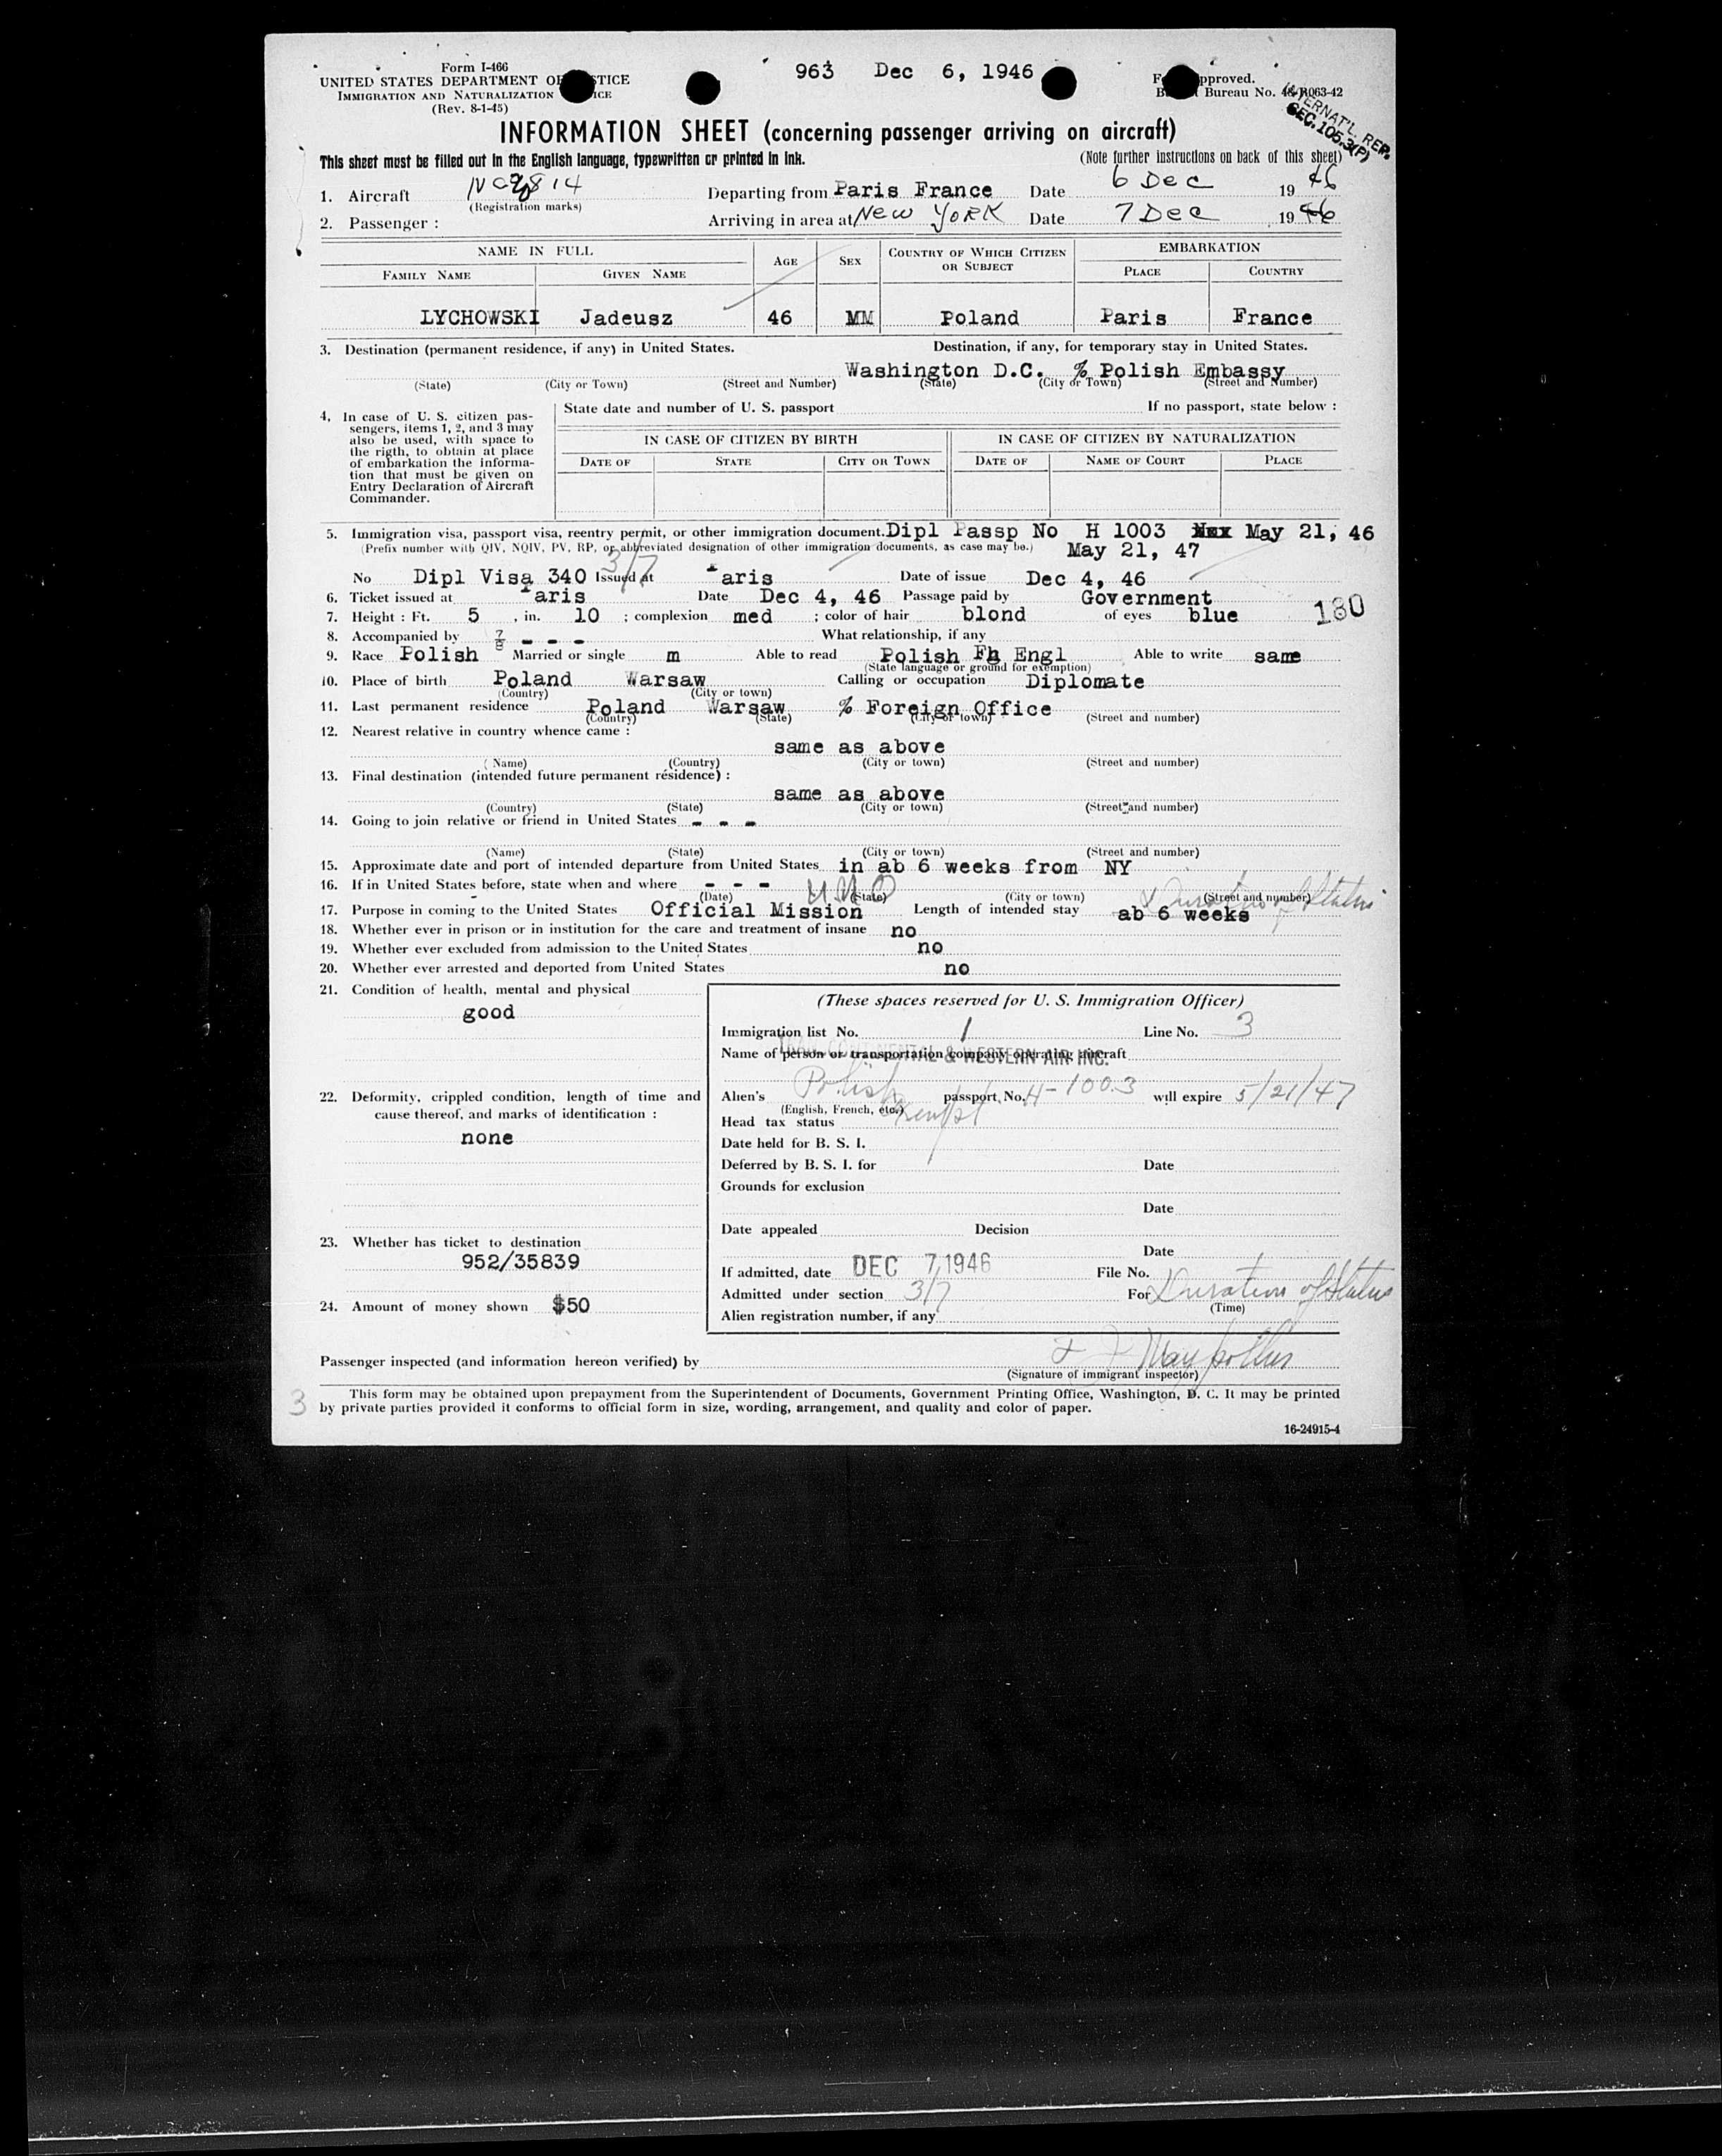 Form I-466
963 Dec 6, 1946
UNITED STATES DEPARTMENT OF STICE
pproved.
IMMIGRATION AND NATURALIZATION ICE
Bureau No. R063-42
(Rev. 8-1-45)
ERNAT'L. REP.
SEC. 105.3(P)
INFORMATION SHEET (concerning passenger arriving on aircraft)
This sheet must be filled out in the English language, typewritten or printed in ink.
(Note further instructions on back of this sheet)
1. Aircraft Departing from Paris France Date 6 Dec 1946
(Registration marks)
2. Passenger : Arriving in area at New YORK Date 7 Dec 1946
NAME IN FULL AGE SEX COUNTRY OF WHICH CITIZEN OR SUBJECT EMBARKATION
FAMILY NAME GIVEN NAME PLACE COUNTRY
LYCHOWSKI Jadeusz 46 MM Poland Paris France
3. Destination (permanent residence, if any) in United States. Destination, if any, for temporary stay in United States.
Washington D.C. % Polish Embassy
(State) (City or Town) (Street and Number) (State) (City or Town) (Street and Number)
4. In case of U. S. citizen pas-
sengers, items 1, 2, and 3 may
also be used, with space to
the rigth, to obtain at place
of embarkation the informa-
tion that must be given on
Entry Declaration of Aircraft
Commander.
State date and number of U. S. passport If no passport, state below :
IN CASE OF CITIZEN BY BIRTH IN CASE OF CITIZEN BY NATURALIZATION
DATE OF STATE CITY OR TOWN DATE OF NAME OF COURT PLACE
5. Immigration visa, passport visa, reentry permit, or other immigration document. Dipl Passp No H 1003 May 21, 46
(Prefix number with QIV, NQIV, PV, RP, or abbreviated designation of other immigration documents, as case may be.) May 21, 47
3/7
No Dipl Visa 340 Issued at Paris Date of issue Dec 4, 46
6. Ticket issued at Paris Date Dec 4, 46 Passage paid by Government
7. Height : Ft. 5 , in. 10 ; complexion med ; color of hair blond of eyes blue 180
8. Accompanied by - - - What relationship, if any
9. Race Polish Married or single m Able to read Polish Fh Engl Able to write same
(State language or ground for exemption)
10. Place of birth Poland Warsaw Calling or occupation Diplomate
(Country) (City or town)
11. Last permanent residence Poland Warsaw % Foreign Office
(Country) (State) (City or town) (Street and number)
12. Nearest relative in country whence came :
same as above
(Name) (Country) (City or town) (Street and number)
13. Final destination (intended future permanent résidence) :
same as above
(Country) (State) (City or town) (Street and number)
14. Going to join relative or friend in United States - - -
(Name) (State) (City or town) (Street and number)
15. Approximate date and port of intended departure from United States in ab 6 weeks from NY
16. If in United States before, state when and where - - -
(Date) (State) (City or town) (Street and number)
UNO Duration of Status
17. Purpose in coming to the United States Official Mission Length of intended stay ab 6 weeks
18. Whether ever in prison or in institution for the care and treatment of insane no
19. Whether ever excluded from admission to the United States no
20. Whether ever arrested and deported from United States no
21. Condition of health, mental and physical
good
22. Deformity, crippled condition, length of time and
cause thereof, and marks of identification :
none
23. Whether has ticket to destination
952/35839
24. Amount of money shown $50
(These spaces reserved for U. S. Immigration Officer)
Immigration list No. 1 Line No. 3
Name of person or transportation company operating aircraft
TRANSCONTINENTAL & WESTERN AIR INC.
Alien's Polish passport, No. H-1003 will expire 5/21/47
(English, French, etc.)
Head tax status Exempt
Date held for B. S. I.
Deferred by B. S. I. for Date
Grounds for exclusion
Date
Date appealed Decision
Date
If admitted, date DEC 7, 1946 File No.
Admitted under section 3/7 For Duration of Status
(Time)
Alien registration number, if any
Passenger inspected (and information hereon verified) by
(Signature of immigrant inspector)
3
This form may be obtained upon prepayment from the Superintendent of Documents, Government Printing Office, Washington, D. C. It may be printed
by private parties provided it conforms to official form in size, wording, arrangement, and quality and color of paper.
16-24915-4